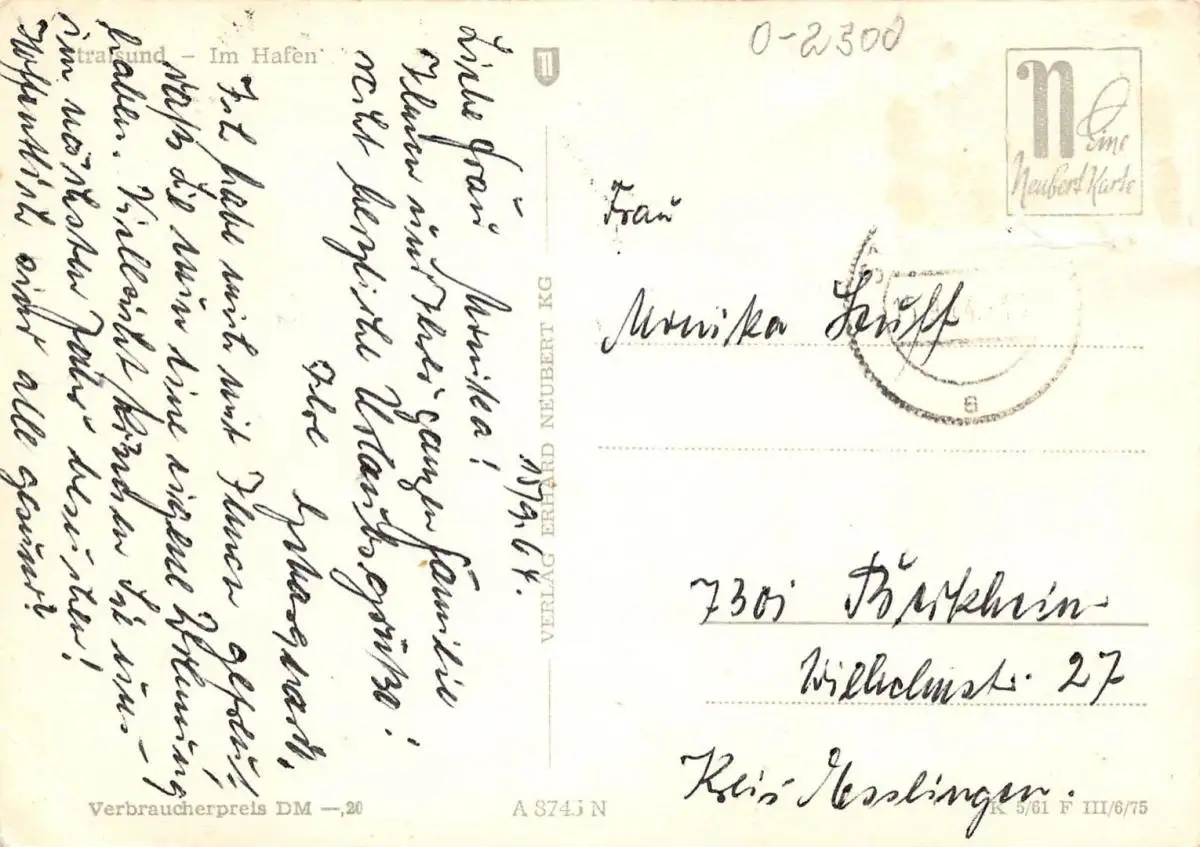 Stralsund – Im Hafen
0-2300
N
Eine
Neubert Karte
15/9.64.
Liebe Frau Monika!
Ihnen und Ihrer ganzen Familie
recht herzliche Urlaubsgrüße!
Ihre
Ich habe mich mit Ihnen gefreut,
daß Sie nun eine eigene Wohnung
haben. Vielleicht können Sie uns
im nächsten Jahr besuchen!
Hoffentlich sind alle gesund!
VERLAG ERHARD NEUBERT KG
Frau
Monika
7301 Berkheim
Wilhelmstr. 27
Kreis Esslingen.
Verbraucherpreis DM —,20
A 8745 N
K 5/61 F III/6/75